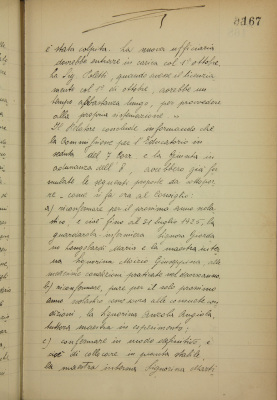 0167
è stata colpita. La nuova ufficiaria
dovrebbe entrare in carica col 1° ottobre.
La Sig. Poletti, quando avesse il
mento col 1° di ottobre, avrebbe un
tempo abbastanza lungo, per provvedere
alla propria sistemazione. "
Il Relatore conclude informando che
la Commissione per l'Educatorio in
seduta del 7 corr. e la Giunta in
adunanza dell' 8, avrebbero già for-
mulate le seguenti proposte da sottopor-
re - come si fa ora al Consiglio:
a) riconfermare per il prossimo anno scola-
stico, e cioè fino al 31 luglio 1925, la
guardarobiera infermiera Signora
Longobardi Maria e la maestra inter-
na Signorina Giuseppina, alle
medesime condizioni praticate nel decorso anno.
b) riconfermare, pure per il solo prossimo
anno scolastico ancora alle consuete con-
dizioni, la Signorina Angiola,
tuttora maestra in esperimento;
c) confermare in modo definitivo, e
di collocare in pianta stabile,
la maestra interna Signorina